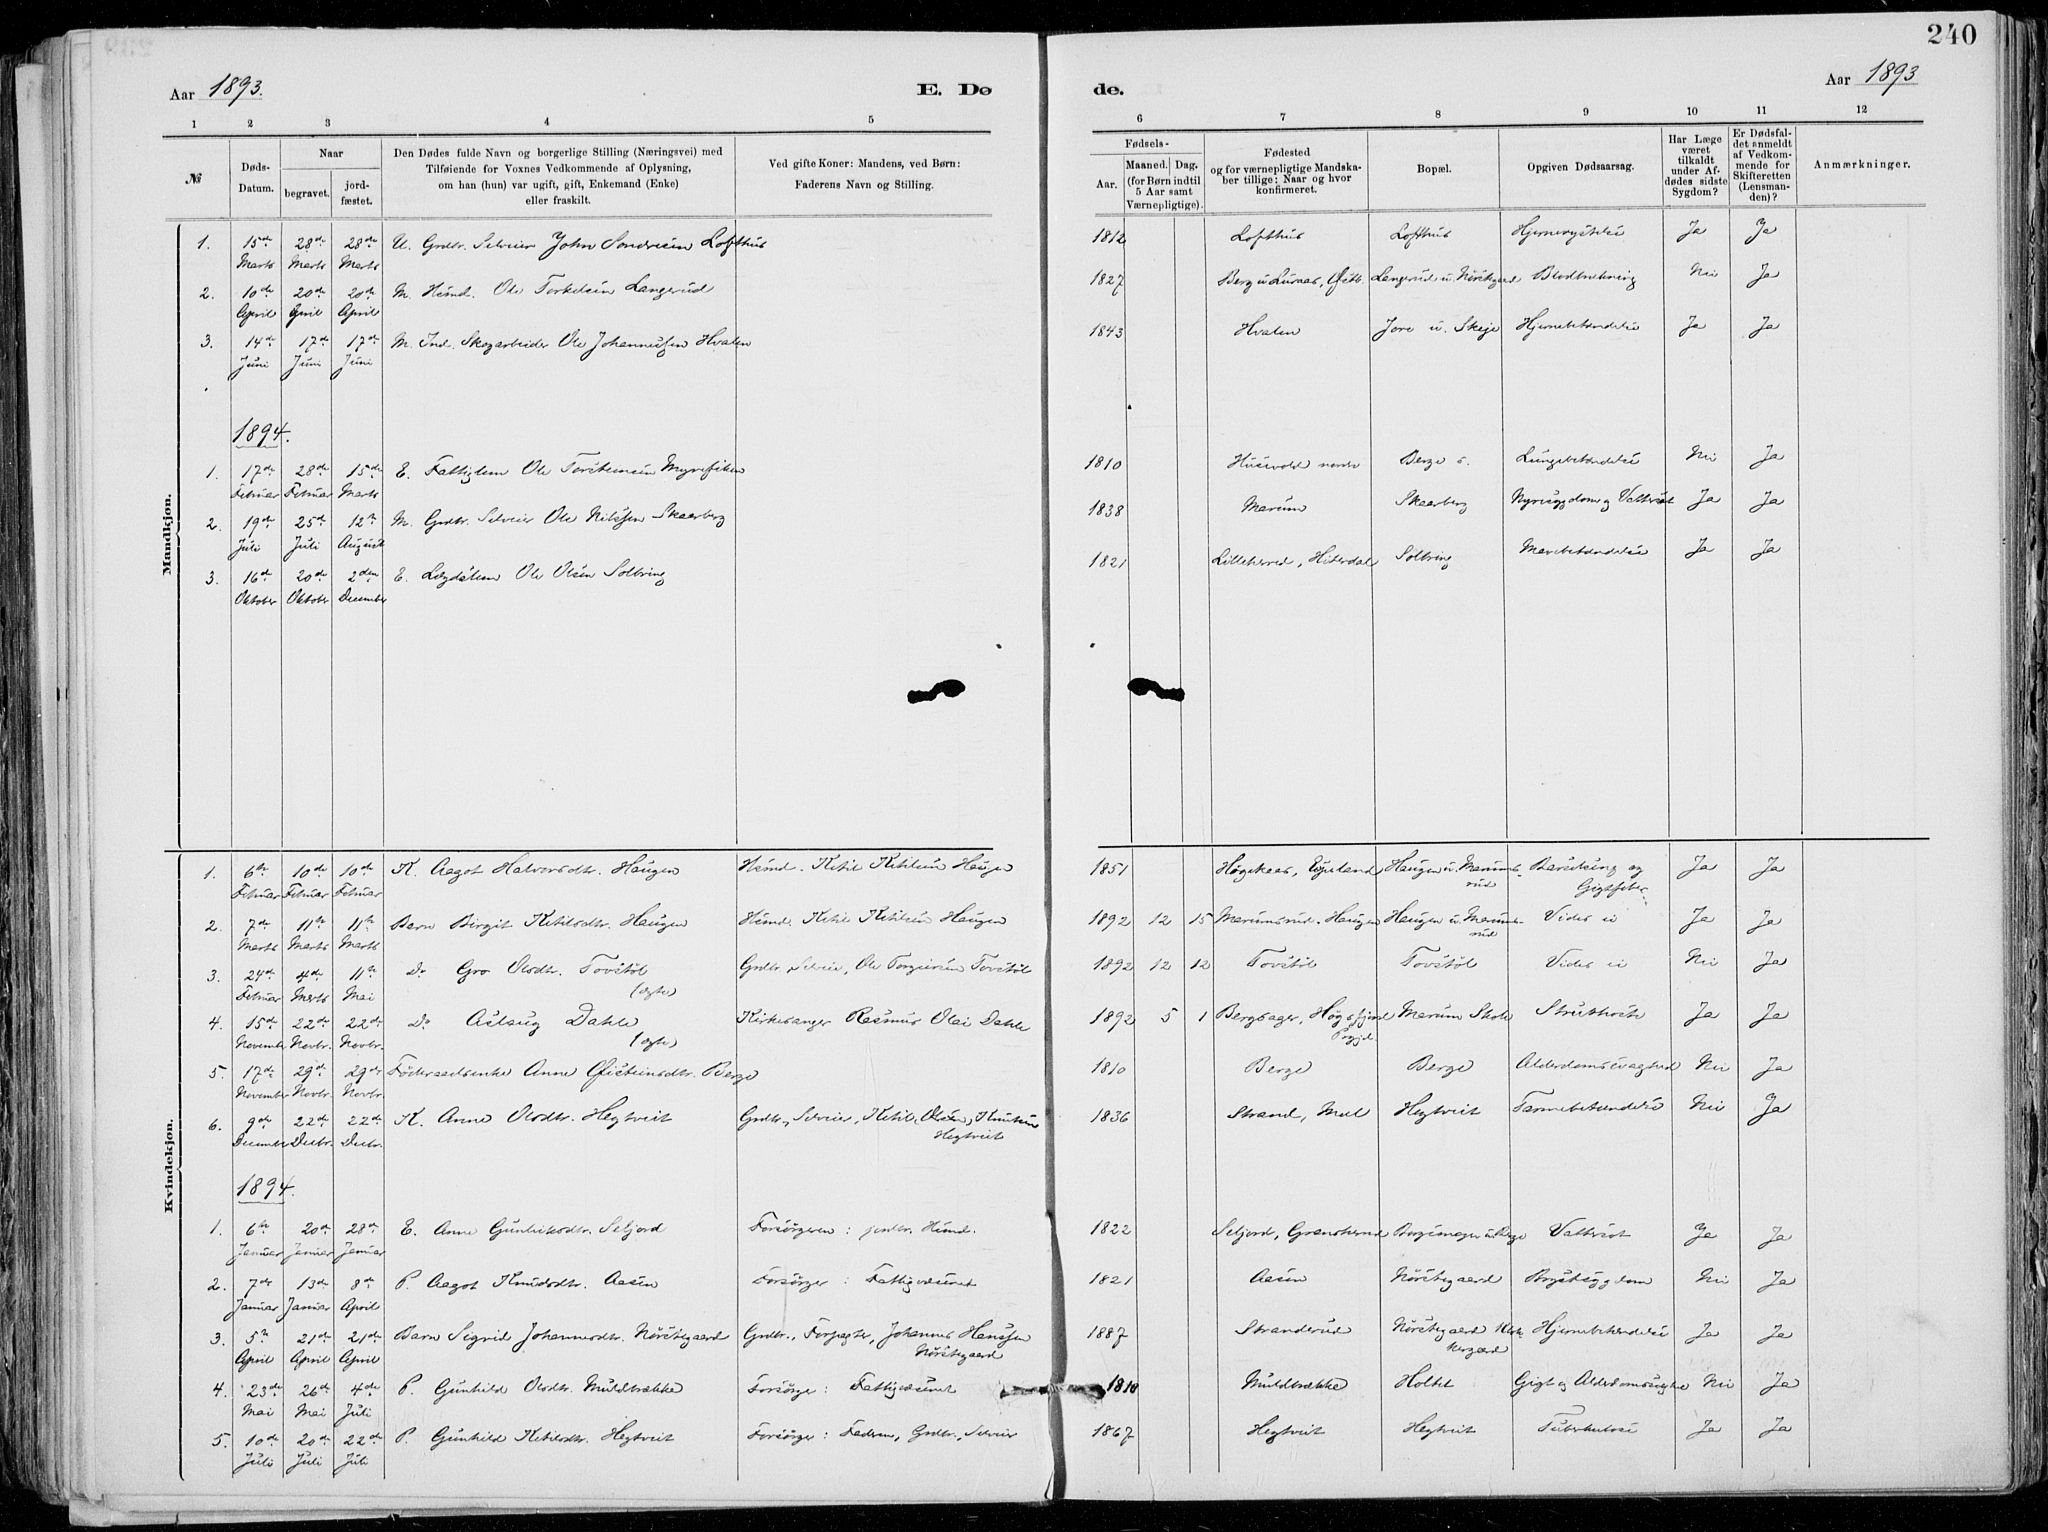 240
Aar 1893. E. Dø de. Aar 1893
1 2 3 4 5 6 7 8 9 10 11 12
№ Døds-Datum. Naar begravet. jordfæstet. Den Dødes fulde Navn og borgerlige Stilling (Næringsvei) med Tilføiende for Voxnes Vedkommende af Oplysning, om han (hun) var ugift, gift, Enkemand (Enke) eller fraskilt. Ved gifte Koner: Mandens, ved Børn: Faderens Navn og Stilling. Fødsels- Aar. Maaned. Dag. (for Børn indtil 5 Aar samt Værnepligtige). Fødested og for værnepligtige Mandskaber tillige: Naar og hvor konfirmeret. Bopæl. Opgiven Dødsaarsag. Har Læge været tilkaldt under Afdødes sidste Sygdom? Er Dødsfaldet anmeldt af Vedkommende for Skifteretten (Lensmanden)? Anmærkninger.
Mandkjøn.
1. 15de Marts 28de Marts 28de Marts U. Grdbr. Selveier John Sondresen Lofthus 1812 Lofthus Lofthus Hjernerystelse Ja Ja
2. 10de April 20de April 20de April M. Husmd. Ole Torkelsen Langerud 1827 Berg u. Luraas, Langerud u. Nørstgaard Blodbrækning Nei Ja
3. 14de Juni 17de Juni 17de Juni M. Ind. Skogarbeider Ole Johannessen Hvalen 1843 Hvalen Jore u. Skeje Hjernebetændelse Ja Ja
1894.
1. 17de Februar 28de Februar 15de Marts E. Fattiglem Ole Torstensen Myrefiken 1810 Husevold nordre Berge s. Lungebetændelse Nei Ja
2. 19de Juli 25de Juli 12te August M. Grdbr. Selveier Ole Nilssen Skaarberg 1838 Marum Skaarberg Nyresygdom og Vattersot Ja Ja
3. 16de Oktober 20de Oktober 2den December E. Lægdslem Ole Olsen Solbring 1821 Lilleherred, Hiterdal Solbring Mavebetændelse Ja Ja
Kvindekjøn.
1. 6te Februar 10de Februar 10de Februar K. Aagot Halvorsdtr. Haugen Husmd. Ketil Ketilsen Haugen 1851 Høgekaas, Haugen u. Marumsrud Barselseng og Gigtfeber Ja Ja
2. 7de Marts 11te Marts 11te Marts Barn Birgit Ketilsdtr. Haugen Husmd. Ketil Ketilsen Haugen 1892 12 15 Marumsrud. Haugen Haugen u. Marumsrud Vides ei Ja Ja
3. 24de Februar 4de Marts 11te Mai Do Gro Olsdtr. Tovstøl (ægte) Grdbr. Selveier, Ole Torgeirsen Tovstøl 1892 12 12 Tovstøl Tovstøl Vides ei Nei Ja
4. 15de November 22de Novbr. 22de Novbr. Do Aslaug Dahle (ægte) Kirkesanger Rasmus Olai Dahle 1892 5 1 Bergsager, Høgsfjord Prgjd. Marum Skole Strubhoste Ja Ja
5. 17de November 29de Novbr. 29de Novbr. Føderaadsenke Anne Øisteinsdtr. Berge 1810 Berge Berge Alderdomssvaghed Nei Ja
6. 9de December 22de Decbr. 22de Decbr. K. Anne Olsdtr. Hegtveit Grdbr., Selveier, Ketil Olsen Knutsen Hegtveit 1836 Strand, Mæl Hegtveit Tarmebetændelse Nei Ja
1894.
1. 6te Januar 20de Januar 28de Januar E. Anne Gunleiksdtr. Seljord Forsørgeren: Husmd. 1822 Seljord, Gransherred Vattersot Ja Ja
2. 7de Januar 13de Januar 8de April P. Aagot Knudsdtr. Aasen Forsørger: Fattigvæsenet 1821 Aasen Nørstegaard Brystsygdom Nei Ja
3. 5te April 21de April 21de April Barn Sigrid Johannesdtr. Nørstegaard Grdbr., Forpagter, Johannes Hanssen Nørstegaard 1887 Stranderud Nørstegaard Hjernebetændelse Ja Ja
4. 23de Mai 26de Mai 4de Juli P. Gunhild Olsdtr. Muldbrække Forsørge: Fattigvæsenet 1810 Muldbrække Holtet Gigt og Alderdomssvaghe Nei Ja
5. 10de Juli 20de Juli 22de Juli P. Gunhild Ketilsdtr. Hegtveit Forsørger: Faderen, Grdbr., Selveier 1867 Hegtveit Hegtveit Tuberkulose Ja Ja